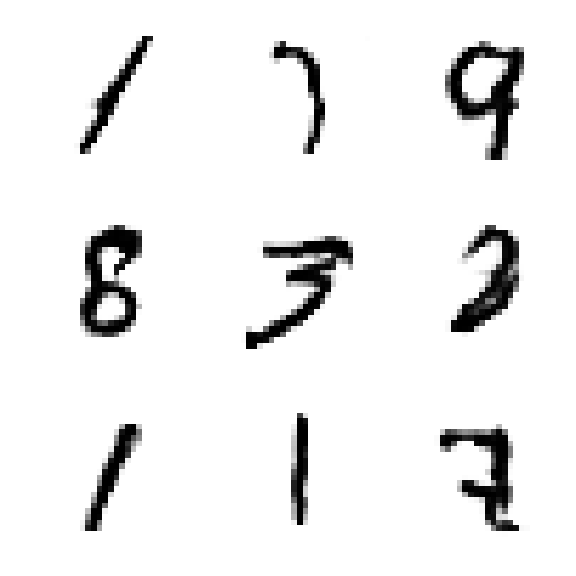 1 7 9
8 3 3
1 1 7